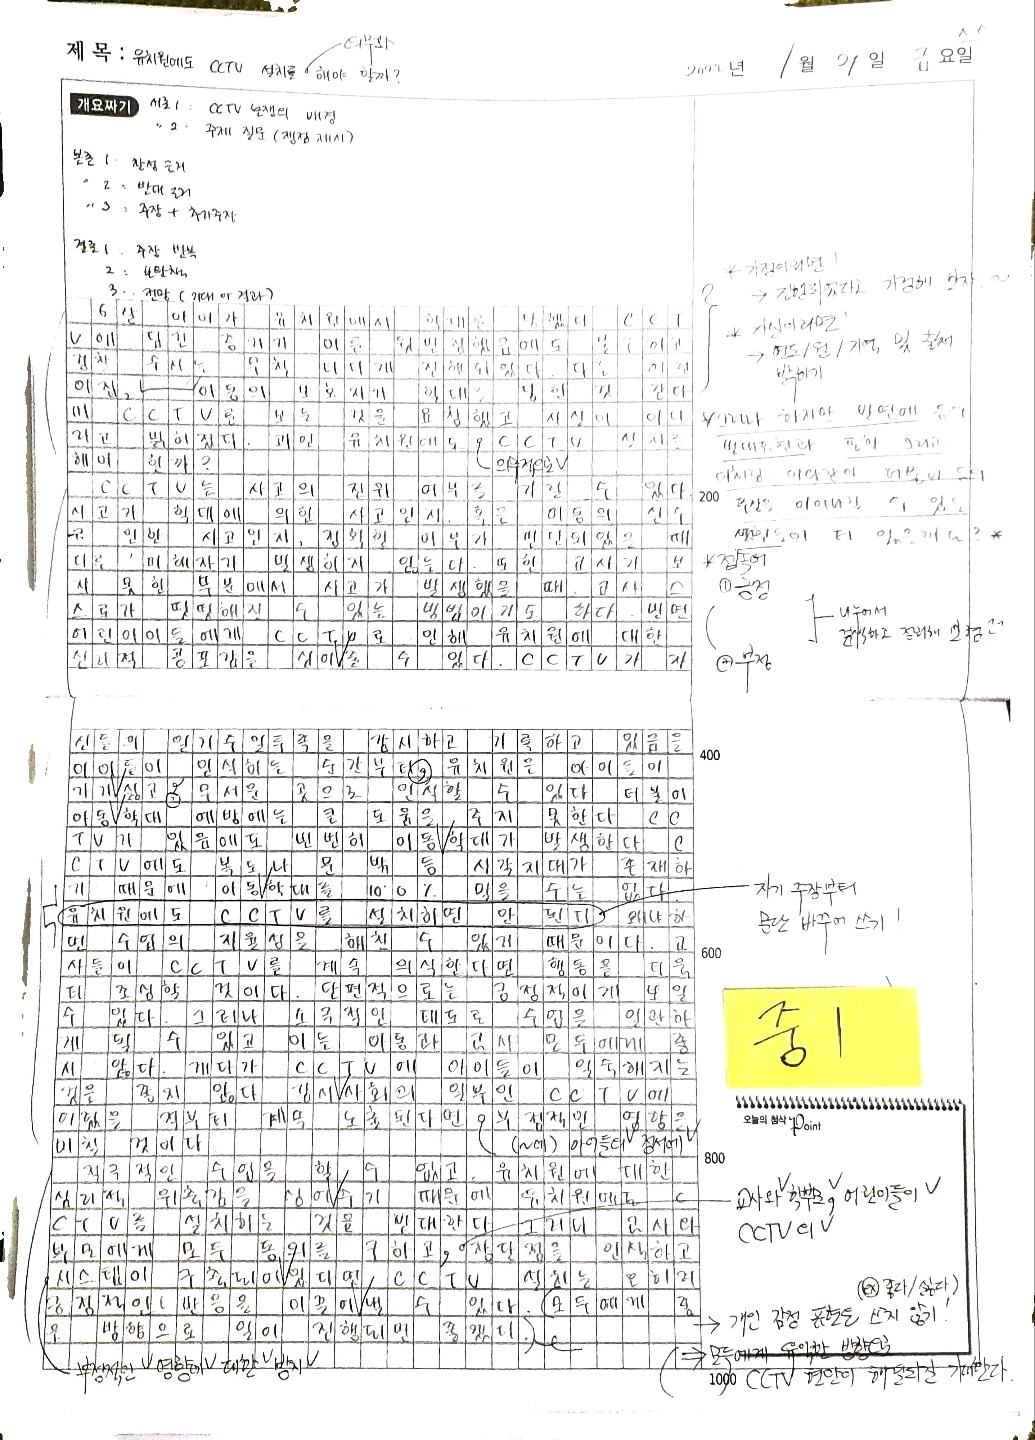 제 목 : 유치원에도 CCTV 설치를 해야 할까?
의무화
2022년 1월 21일 금요일
개요짜기
서론 1 : CCTV 논쟁의 배경
〃 2 : 주제 질문 (쟁점 제시)
본론 1 : 찬성 근거
〃 2 : 반대 근거
〃 3 : 주장 + 추가주장
결론 1 : 주장 반복
2 : 보완책
3 : 전망 (기대 or 결과)
6살 아이가 유치원에서 학대를 당했다 CCT
V에 담긴 증거가 이를 뒷받침했음에도 불구하고
경찰 수사는 더디게 진행되었다. 다른
이집, 아동의 보호자가 학대를 당한 것 같다
며 CCTV를 보는 것을 요청했고 사실이 아니
라고 밝혀졌다. 과연 유치원에도 CCTV 설치를
해야 할까?
의무적으로
CCTV는 사고의 진위 여부를 가릴 수 있다
사고가 학대에 의한 사고인지, 혹은 아동의 실수
로 인한 사고인지, 정확한 여부가 판단되었을 때
다른 피해자가 발생하지 않는다. 또한 교사가 보
지 못한 부분에서 사고가 발생했을 때 교사 스
스로가 떳떳해질 수 있는 방법이기도 하다. 반면
어린아이들에게 CCTV로 인해 유치원에 대한
심리적 공포감을 심어줄 수 있다. CCTV가 자
* 가정이라면!
→ 진행되었다고 가정해 보자. ~
* 사실이라면
→ 연도/월/지역 및 출처 밝히기
* 그러나 하지만 반면에 등의
반대표현과 또한 그리고
이처럼 이와 같이 더불어 등의
문장을 이어나갈 수 있는
* 접속어
① 긍정
② 부정
나누어서
신들의 일거수일투족을 감시하고 기록하고 있음을
아이들이 인식하는 순간부터, 유치원은 아이들이
가기 싫고 무서운 곳으로 인식할 수 있다 더불어
아동학대 예방에는 큰 도움을 주지 못한다 CC
TV가 있음에도 빈번히 아동학대가 발생한다 C
CTV에도 복도나 문 밖 등 시각지대가 존재하
기 때문에 아동학대를 100% 막을 수는 없다.
유치원에도 CCTV를 설치하면 안 된다 왜냐하
면 수업의 자율성을 해칠 수 있기 때문이다. 교
사들이 CCTV를 계속 의식한다면 행동을 더욱
더 조심할 것이다. 단편적으로는 긍정적이게 보일
수 있다. 그러나 소극적인 태도로 수업을 일관하
게 될 수 있고 이는 아동과 교사 모두에게 좋
지 않다. 게다가 CCTV에 아이들이 익숙해지는
것을 좋지 않다 감시사회의 일부인 CCTV에
어렸을 적부터 계속 노출된다면 부정적인 영향을
미칠 것이다
(~에) 아이들의 정서에
적극적인 수업을 할 수 없고, 유치원에 대한
심리적 위축감을 심어주기 때문에 유치원에도 C
CTV를 설치하는 것을 반대한다 그러나 교사와
부모에게 모두 동의를 구하고, 장단점을 인식하고
시스템이 구축되어있다면 CCTV 설치는 오히려
긍정적인 반응을 이끌어낼 수 있다. 모두에게 좋
은 방향으로 일이 진행되면 좋겠다.
부정적인 영향에 대한 방지
자기 주장부터
문단 바꾸어 쓰기!
중1
오늘의 첨삭 Point
교사와 학부모, 어린이들이
CCTV의
(ex 좋다/싫다)
→ 개인 감정 표현은 쓰지 않기!
⇒ 모두에게 유익한 방향으로
CCTV 현안이 해결되길 기대한다.
200
400
600
800
1000